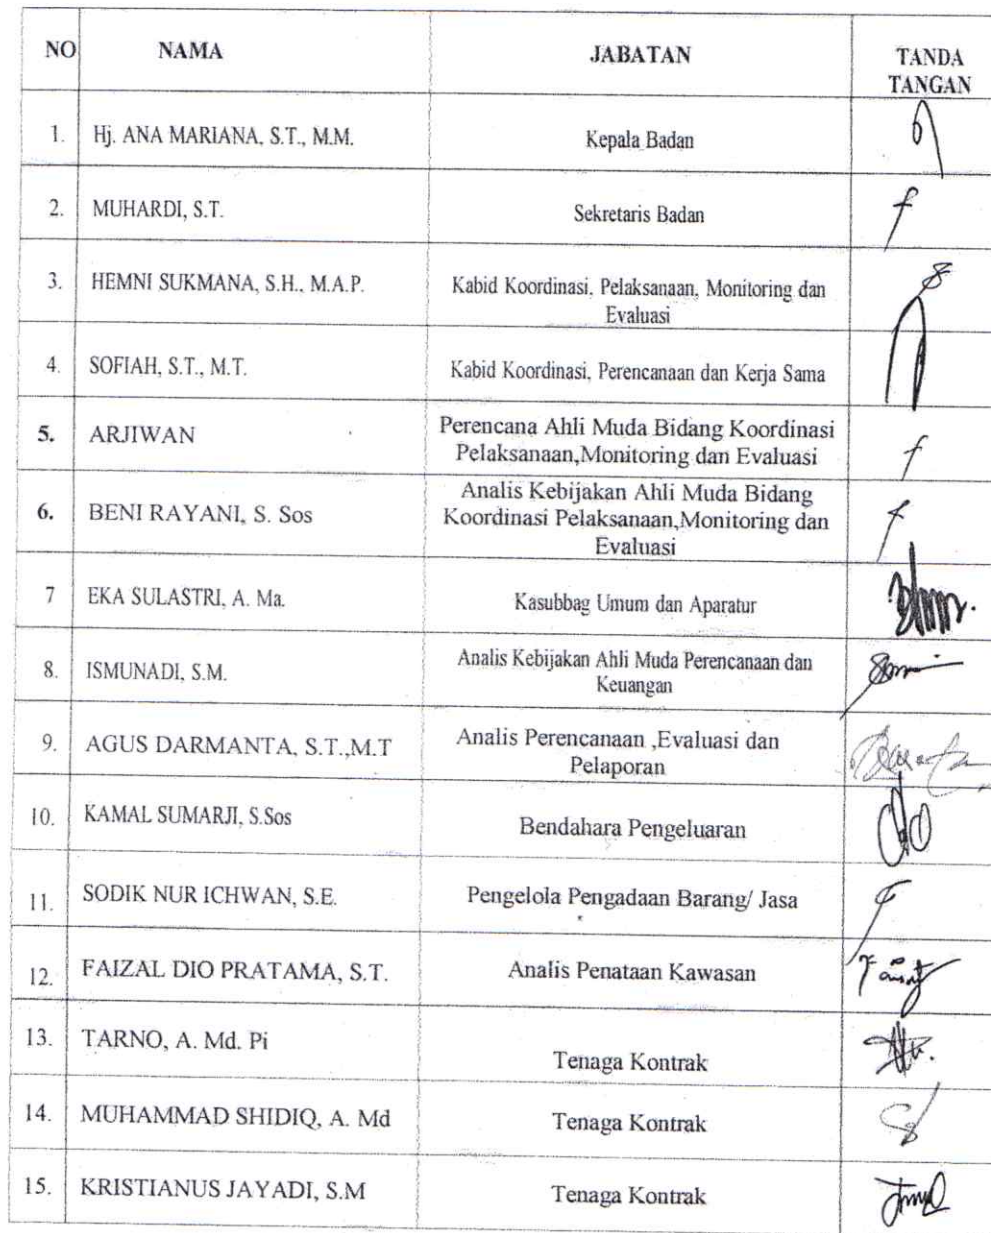 NO NAMA JABATAN TANDA
TANGAN
1. Hj. ANA MARIANA, S.T., M.M. Kepala Badan
2. MUHARDI, S.T. Sekretaris Badan
3. HEMNI SUKMANA, S.H., M.A.P. Kabid Koordinasi, Pelaksanaan, Monitoring dan
Evaluasi
4. SOFIAH, S.T., M.T. Kabid Koordinasi, Perencanaan dan Kerja Sama
5. ARJIWAN Perencana Ahli Muda Bidang Koordinasi
Pelaksanaan,Monitoring dan Evaluasi
6. BENI RAYANI, S. Sos Analis Kebijakan Ahli Muda Bidang
Koordinasi Pelaksanaan,Monitoring dan
Evaluasi
7 EKA SULASTRI, A. Ma. Kasubbag Umum dan Aparatur
8. ISMUNADI, S.M. Analis Kebijakan Ahli Muda Perencanaan dan
Keuangan
9. AGUS DARMANTA, S.T.,M.T Analis Perencanaan ,Evaluasi dan
Pelaporan
10. KAMAL SUMARJI, S.Sos Bendahara Pengeluaran
11. SODIK NUR ICHWAN, S.E. Pengelola Pengadaan Barang/ Jasa
12. FAIZAL DIO PRATAMA, S.T. Analis Penataan Kawasan
13. TARNO, A. Md. Pi Tenaga Kontrak
14. MUHAMMAD SHIDIQ, A. Md Tenaga Kontrak
15. KRISTIANUS JAYADI, S.M Tenaga Kontrak